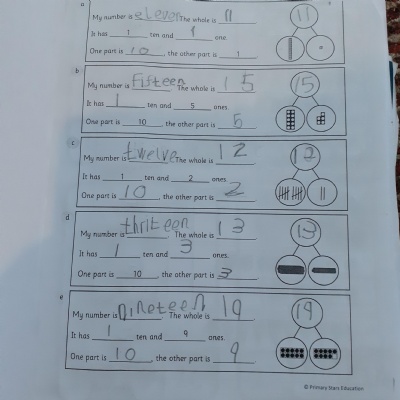 a
My number is eleven The whole is 11
11
It has 1 ten and 1 one.
One part is 10, the other part is 1
b
My number is fifteen The whole is 15
15
It has 1 ten and 5 ones.
One part is 10, the other part is 5
c
My number is twelve The whole is 12
12
It has 1 ten and 2 ones.
One part is 10, the other part is 2
d
My number is thriteen The whole is 13
13
It has 1 ten and 3 ones.
One part is 10, the other part is 3
e
My number is nineteen The whole is 19
19
It has 1 ten and 9 ones.
One part is 10, the other part is 9
© Primary Stars Education